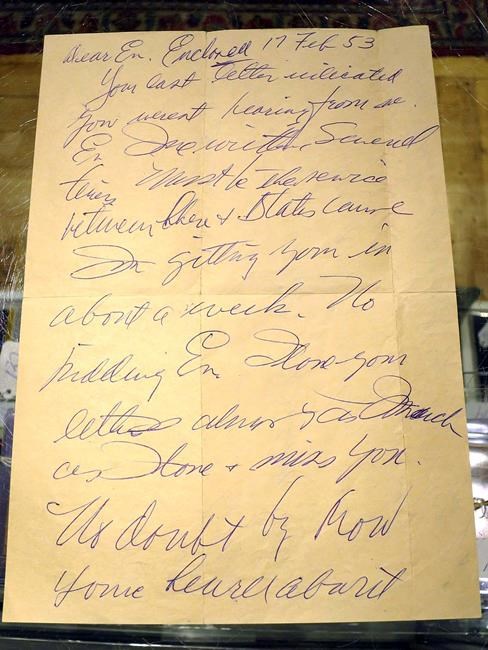 Dear En. Enclosed 17 Feb 53
Your last letter indicated
you werent hearing from me.
En I've written Several
times Must be the service
between here & States cause
I'm gitting yours in
about a week. No
kidding En. I love your
letters almost as much
as I love & miss you.
No doubt by now
youve heard about